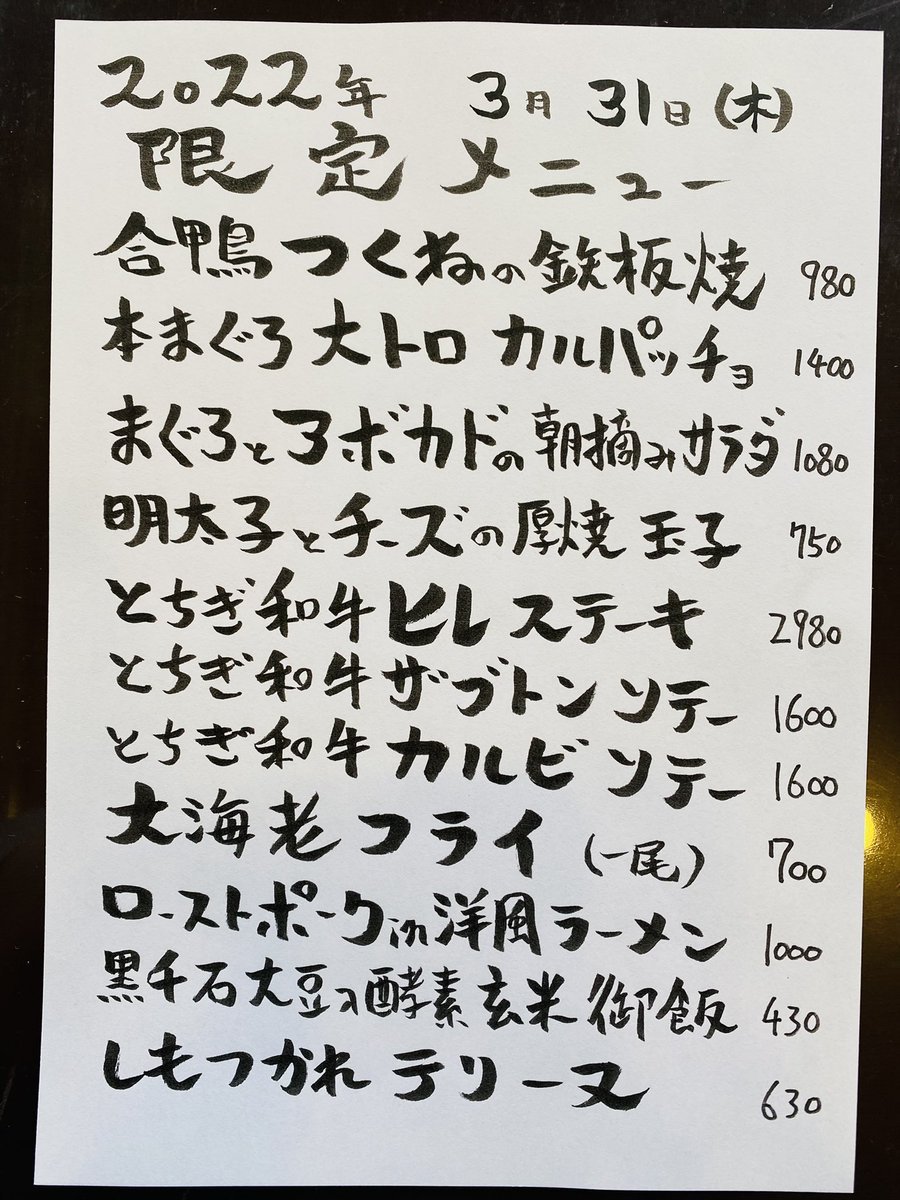 2022年 3月31日(木)
限定メニュー
合鴨つくねの鉄板焼 980
本まぐろ大トロカルパッチョ 1400
まぐろとアボカドの朝摘みサラダ 1080
明太子とチーズの厚焼玉子 750
とちぎ和牛ヒレステーキ 2980
とちぎ和牛ザブトンソテー 1600
とちぎ和牛カルビソテー 1600
大海老フライ(一尾) 700
ローストポークin洋風ラーメン 1000
黒千石大豆の酵素玄米御飯 430
しもつかれテリーヌ 630